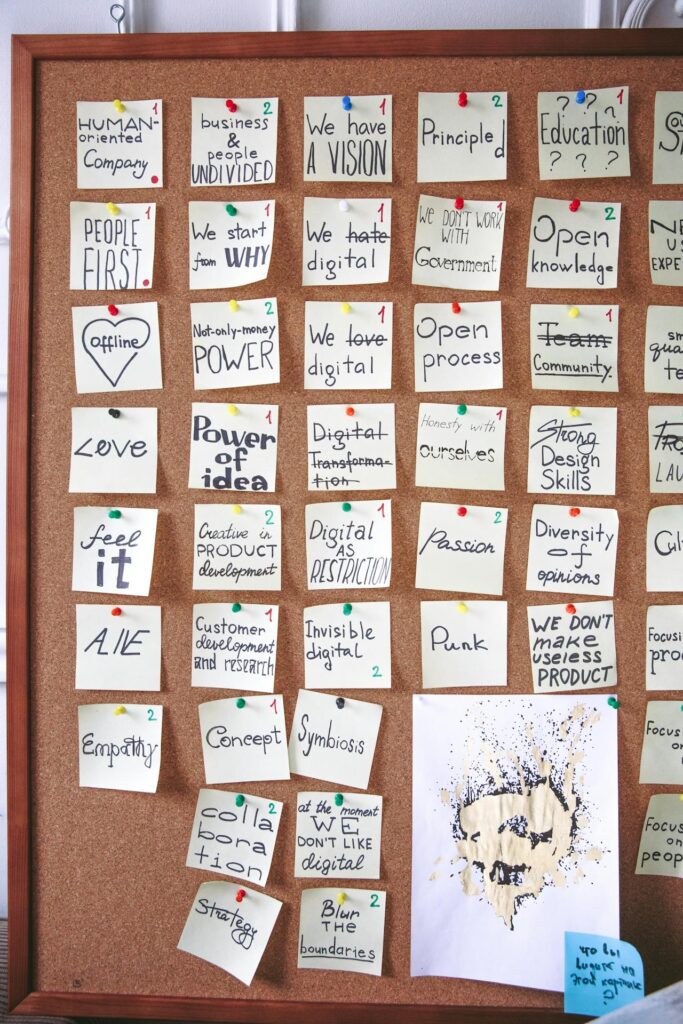 1
HUMAN-
oriented
Company.
2
business
&
people
UNDIVIDED
1
We have
A VISION
2
Principled
1
? ? ?
Education
? ? ? ?
1
PEOPLE
FIRST.
1
We start
from WHY
1
We hate
digital
1
WE DON'T WORK
WITH
Government
2
Open
knowledge
offline
2
Not-only-money
POWER
1
We love
digital
Open
process
1
Team
Community.
Love
1
Power
of
idea
Digital
Transforma-
tion
1
Honesty with
ourselves
Strong
Design
Skills
feel
it
2
Creative in
PRODUCT
development
1
Digital
AS
RESTRICTION
2
Passion
Diversity
of
opinions
ALIE
1
Customer
development
and research
Invisible
digital
2
Punk
WE DON'T
make
useless
PRODUCT
Focus
2
Empathy
1
Concept
Symbiosis
Focus
on
2
colla
bora
tion
at the moment
WE
DON'T LIKE
digital
Focus
on
people
Strategy
2
Blur
THE
boundaries
что вы
видите на
этой картинке